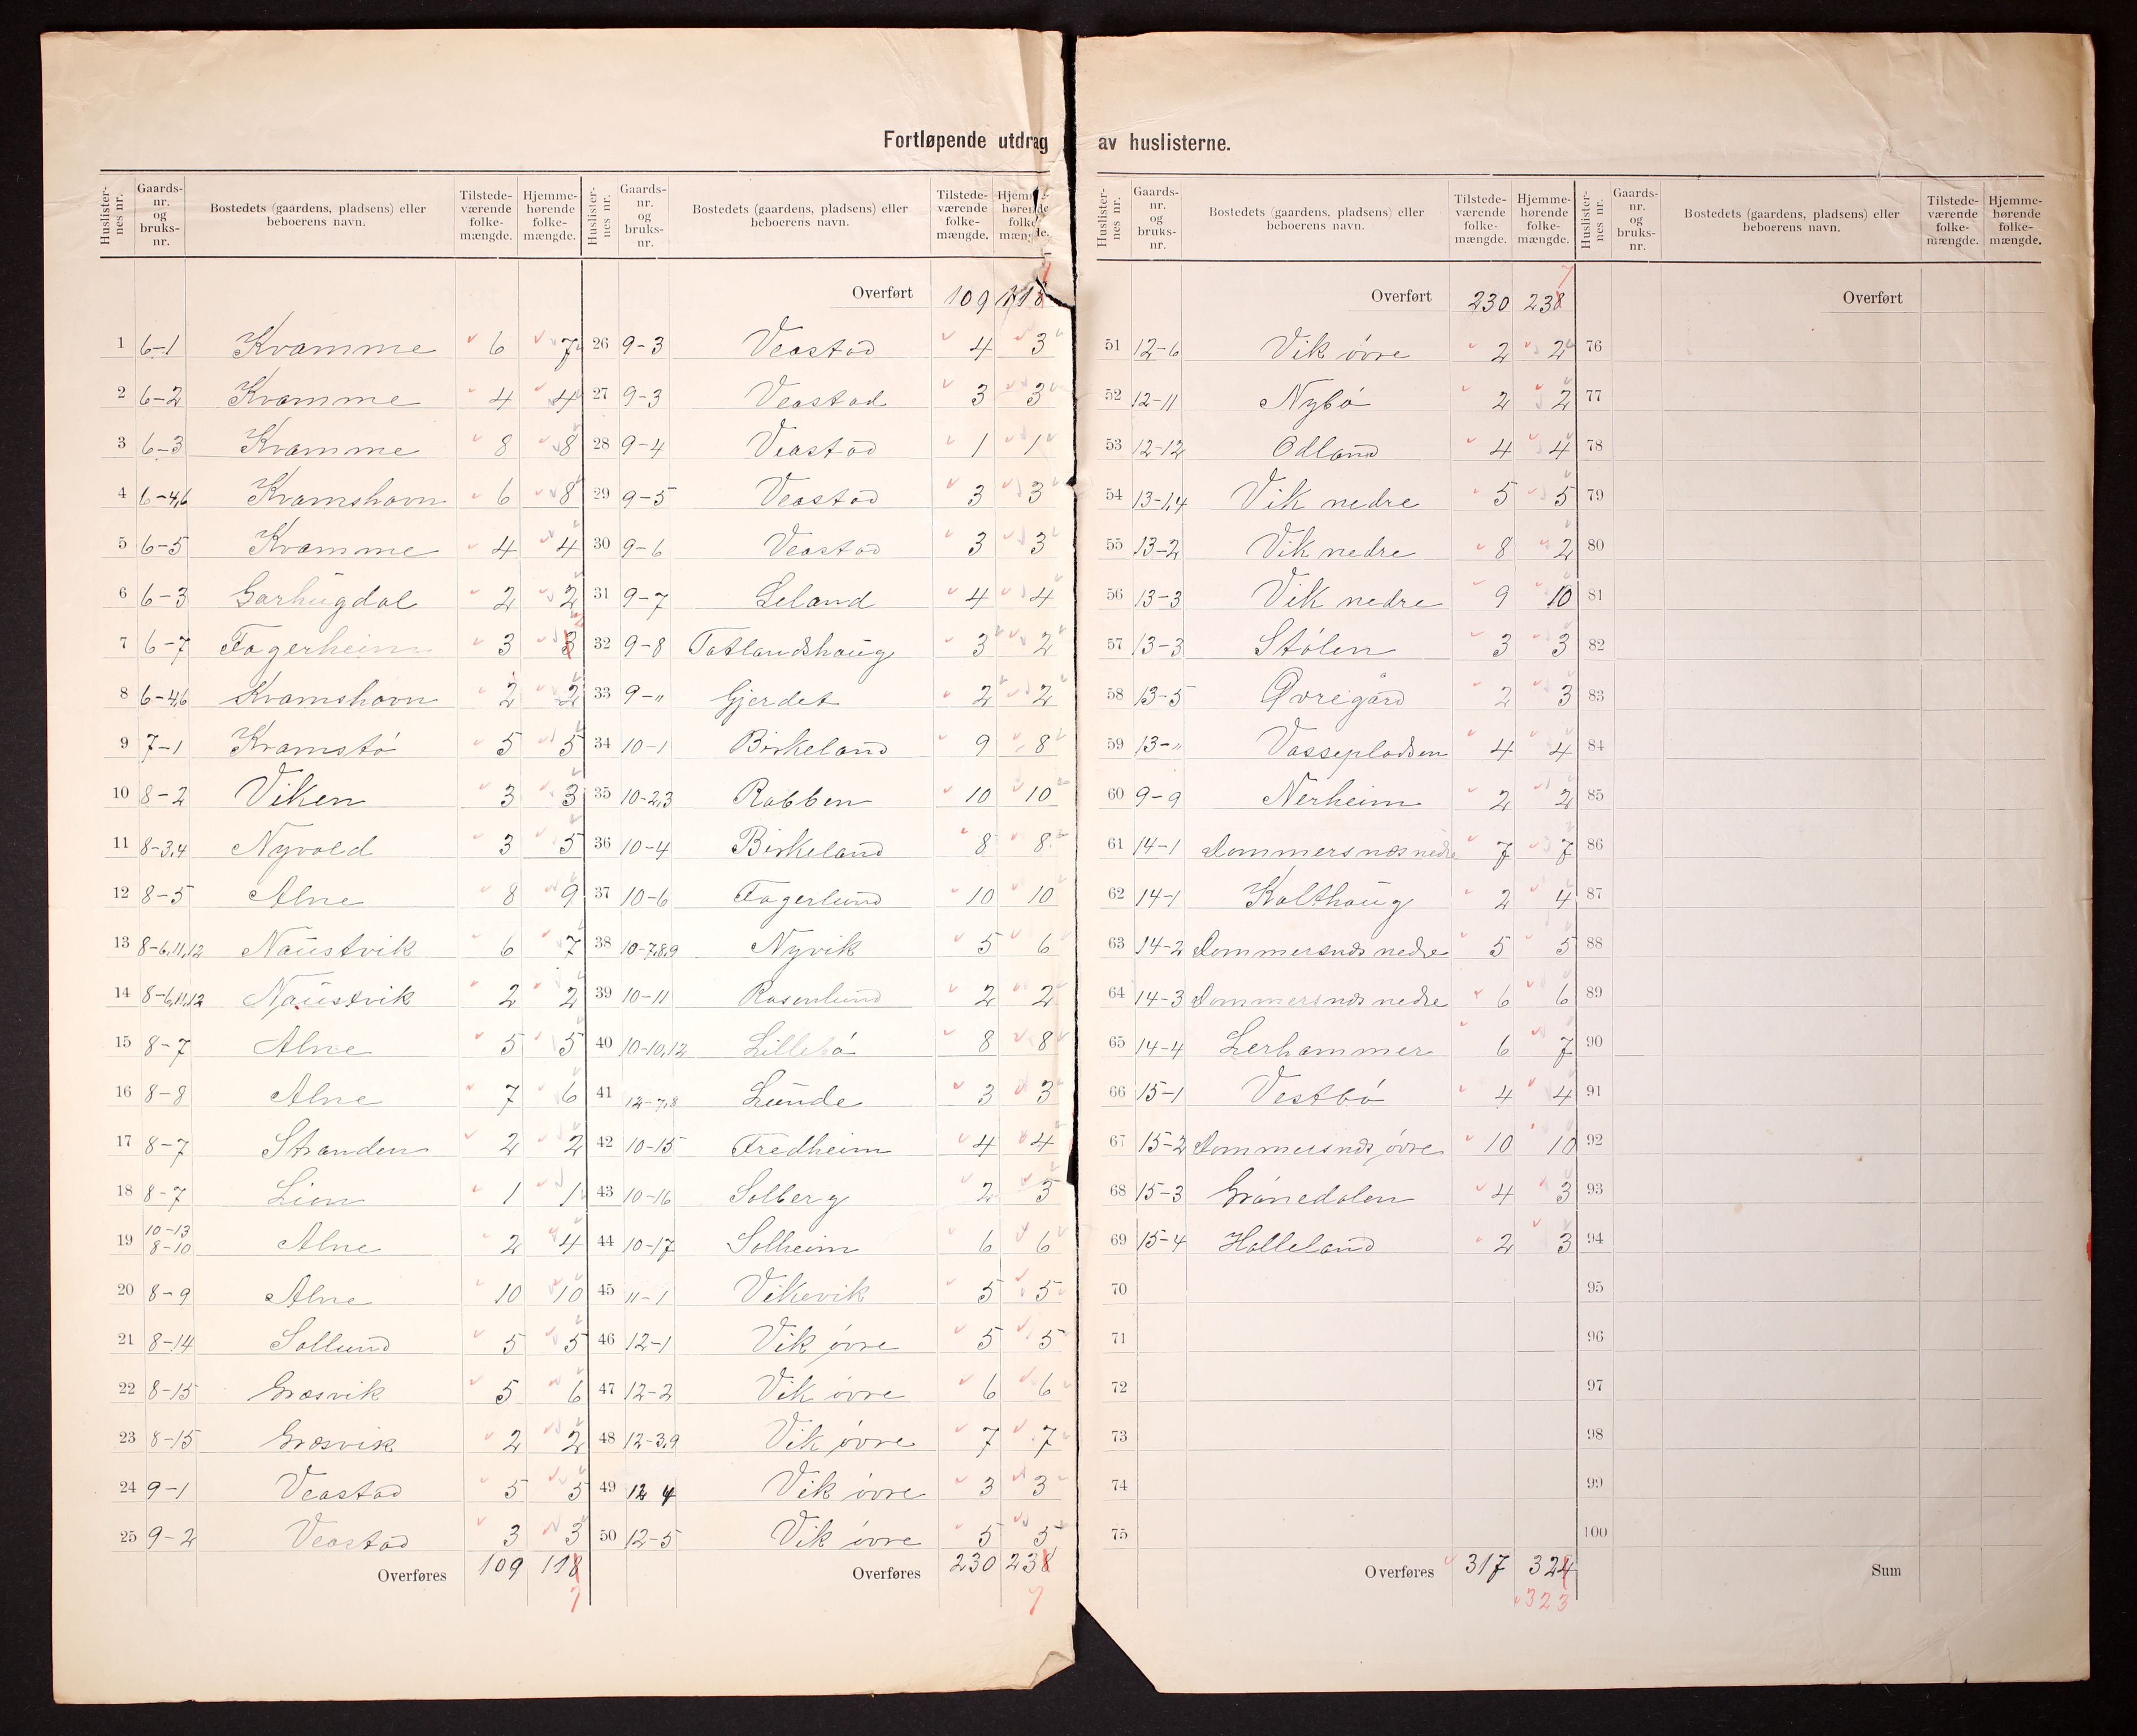 Fortløpende utdrag av huslisterne.
Huslisternes nr. Gaards-nr. og bruks-nr. Bostedets (gaardens, pladsens) eller beboerens navn. Tilstede-værende folke-mængde. Hjemme-hørende folke-mængde.
1 6-1 Kvamme 6 7
2 6-2 Kvamme 4 4
3 6-3 Kvamme 8 8
4 6-4,6 Kvamshavn 6 8
5 6-5 Kvamme 4 4
6 6-3 Garhugdal 2 2
7 6-7 Fagerheim 3
8 6-4,6 Kvamshavn 2 2
9 7-1 Kvamstø 5 5
10 8-2 Viken 3 3
11 8-3,4 Nyvold 3 5
12 8-5 Alne 8 9
13 8-6,11,12 Naustvik 6 7
14 8-6,11,12 Naustvik 2 2
15 8-7 Alne 5 5
16 8-8 Alne 7 6
17 8-7 Stranden 2 2
18 8-7 Lien 1 1
19 10-13 8-10 Alne 2 4
20 8-9 Alne 10 10
21 8-14 Sollund 5 5
22 8-15 Græsvik 5 6
23 8-15 Græsvik 2 2
24 9-1 Veastad 5 5
25 9-2 Veastad 3 3
Overføres 109 118
7
Huslisternes nr. Gaards-nr. og bruks-nr. Bostedets (gaardens, pladsens) eller beboerens navn. Tilstede-værende folke-mængde. Hjemme-hørende folke-mængde.
Overført 109 118
26 9-3 Veastad 4 3
27 9-3 Veastad 3 3
28 9-4 Veastad 1 1
29 9-5 Veastad 3 3
30 9-6 Veastad 3 3
31 9-7 Leland 4 4
32 9-8 Tatlandshaug 3 2
33 9-" Gjerdet 2 2
34 10-1 Birkeland 9 8
35 10-2,3 Rabben 10 10
36 10-4 Birkeland 8 8
37 10-6 Fagerlund 10 10
38 10-7,8,9 Nyvik 5 6
39 10-11 Rosenlund 2 2
40 10-10,12 Lillebø 8 8
41 12-7,8 Lunde 3 3
42 10-15 Fredheim 4 4
43 10-16 Solberg 2 3
44 10-17 Solheim 6 6
45 11-1 Vikevik 5 5
46 12-1 Vik øvre 5 5
47 12-2 Vik øvre 6 6
48 12-3,9 Vik øvre 7 7
49 12 4 Vik øvre 3 3
50 12-5 Vik øvre 5 5
Overføres 230 238
7
Huslisternes nr. Gaards-nr. og bruks-nr. Bostedets (gaardens, pladsens) eller beboerens navn. Tilstede-værende folke-mængde. Hjemme-hørende folke-mængde.
7
Overført 230 238
51 12-6 Vik øvre 2 2
52 12-11 Nybø 2 2
53 12-12 Odland 4 4
54 13-1,4 Vik nedre 5 5
55 13-2 Vik nedre 8 2
56 13-3 Vik nedre 9 10
57 13-3 Stølen 3 3
58 13-5 Øvregård 2 3
59 13-" Vassepladsen 4 4
60 9-9 Nerheim 2 2
61 14-1 Dommersnæs nedre 7 7
62 14-1 Kalthaug 2 4
63 14-2 Dommersnæs nedre 5 5
64 14-3 Dommersnæs nedre 6 6
65 14-4 Lerhammer 6 7
66 15-1 Vestbø 4 4
67 15-2 Dommersnæs øvre 10 10
68 15-3 Grønedalen 4 3
69 15-4 Halleland 2 3
70
71
72
73
74
75
Overføres 317 324
323
Huslisternes nr. Gaards-nr. og bruks-nr. Bostedets (gaardens, pladsens) eller beboerens navn. Tilstede-værende folke-mængde. Hjemme-hørende folke-mængde.
Overført
76
77
78
79
80
81
82
83
84
85
86
87
88
89
90
91
92
93
94
95
96
97
98
99
100
Sum